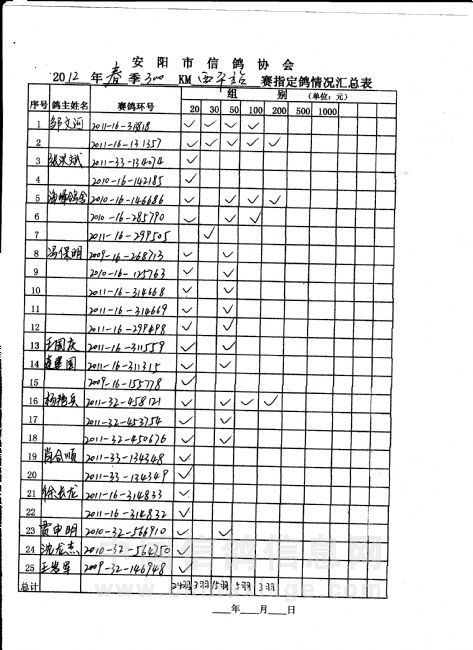 安阳市信鸽协会
2012年春季300KM西平站赛指定鸽情况汇总表
序号 鸽主姓名 赛鸽环号 组别(单位:元)
20 30 50 100 200 500 1000
1 邹文河 2011-16-31818 ✓ ✓ ✓ ✓
2 2011-16-131357 ✓ ✓ ✓ ✓ ✓
3 张洪斌 2011-33-134074 ✓
4 2010-16-142185 ✓
5 2010-16-146686 ✓ ✓ ✓ ✓
6 2010-16-285790 ✓ ✓ ✓
7 2011-16-299505 ✓
8 冯保明 2009-16-268713 ✓ ✓
9 2010-16-125763 ✓ ✓
10 2011-16-314668 ✓ ✓
11 2011-16-314669 ✓ ✓
12 2011-16-299498 ✓ ✓
13 王国庆 2011-16-311559 ✓ ✓
14 2011-16-311315 ✓ ✓
15 2009-16-155778 ✓
16 2011-32-458121 ✓ ✓ ✓ ✓
17 2011-32-453754 ✓ ✓
18 2011-32-450676 ✓ ✓
19 肖合顺 2011-33-134348 ✓
20 2011-33-134349 ✓
21 徐长龙 2011-16-314833 ✓
22 2011-16-314832 ✓
23 贾申明 2010-32-566910 ✓ ✓
24 沈龙杰 2010-32-564750 ✓
25 2009-32-146948 ✓
总计 24羽 3羽 15羽 5羽 3羽
年 月 日
信鸽信息网